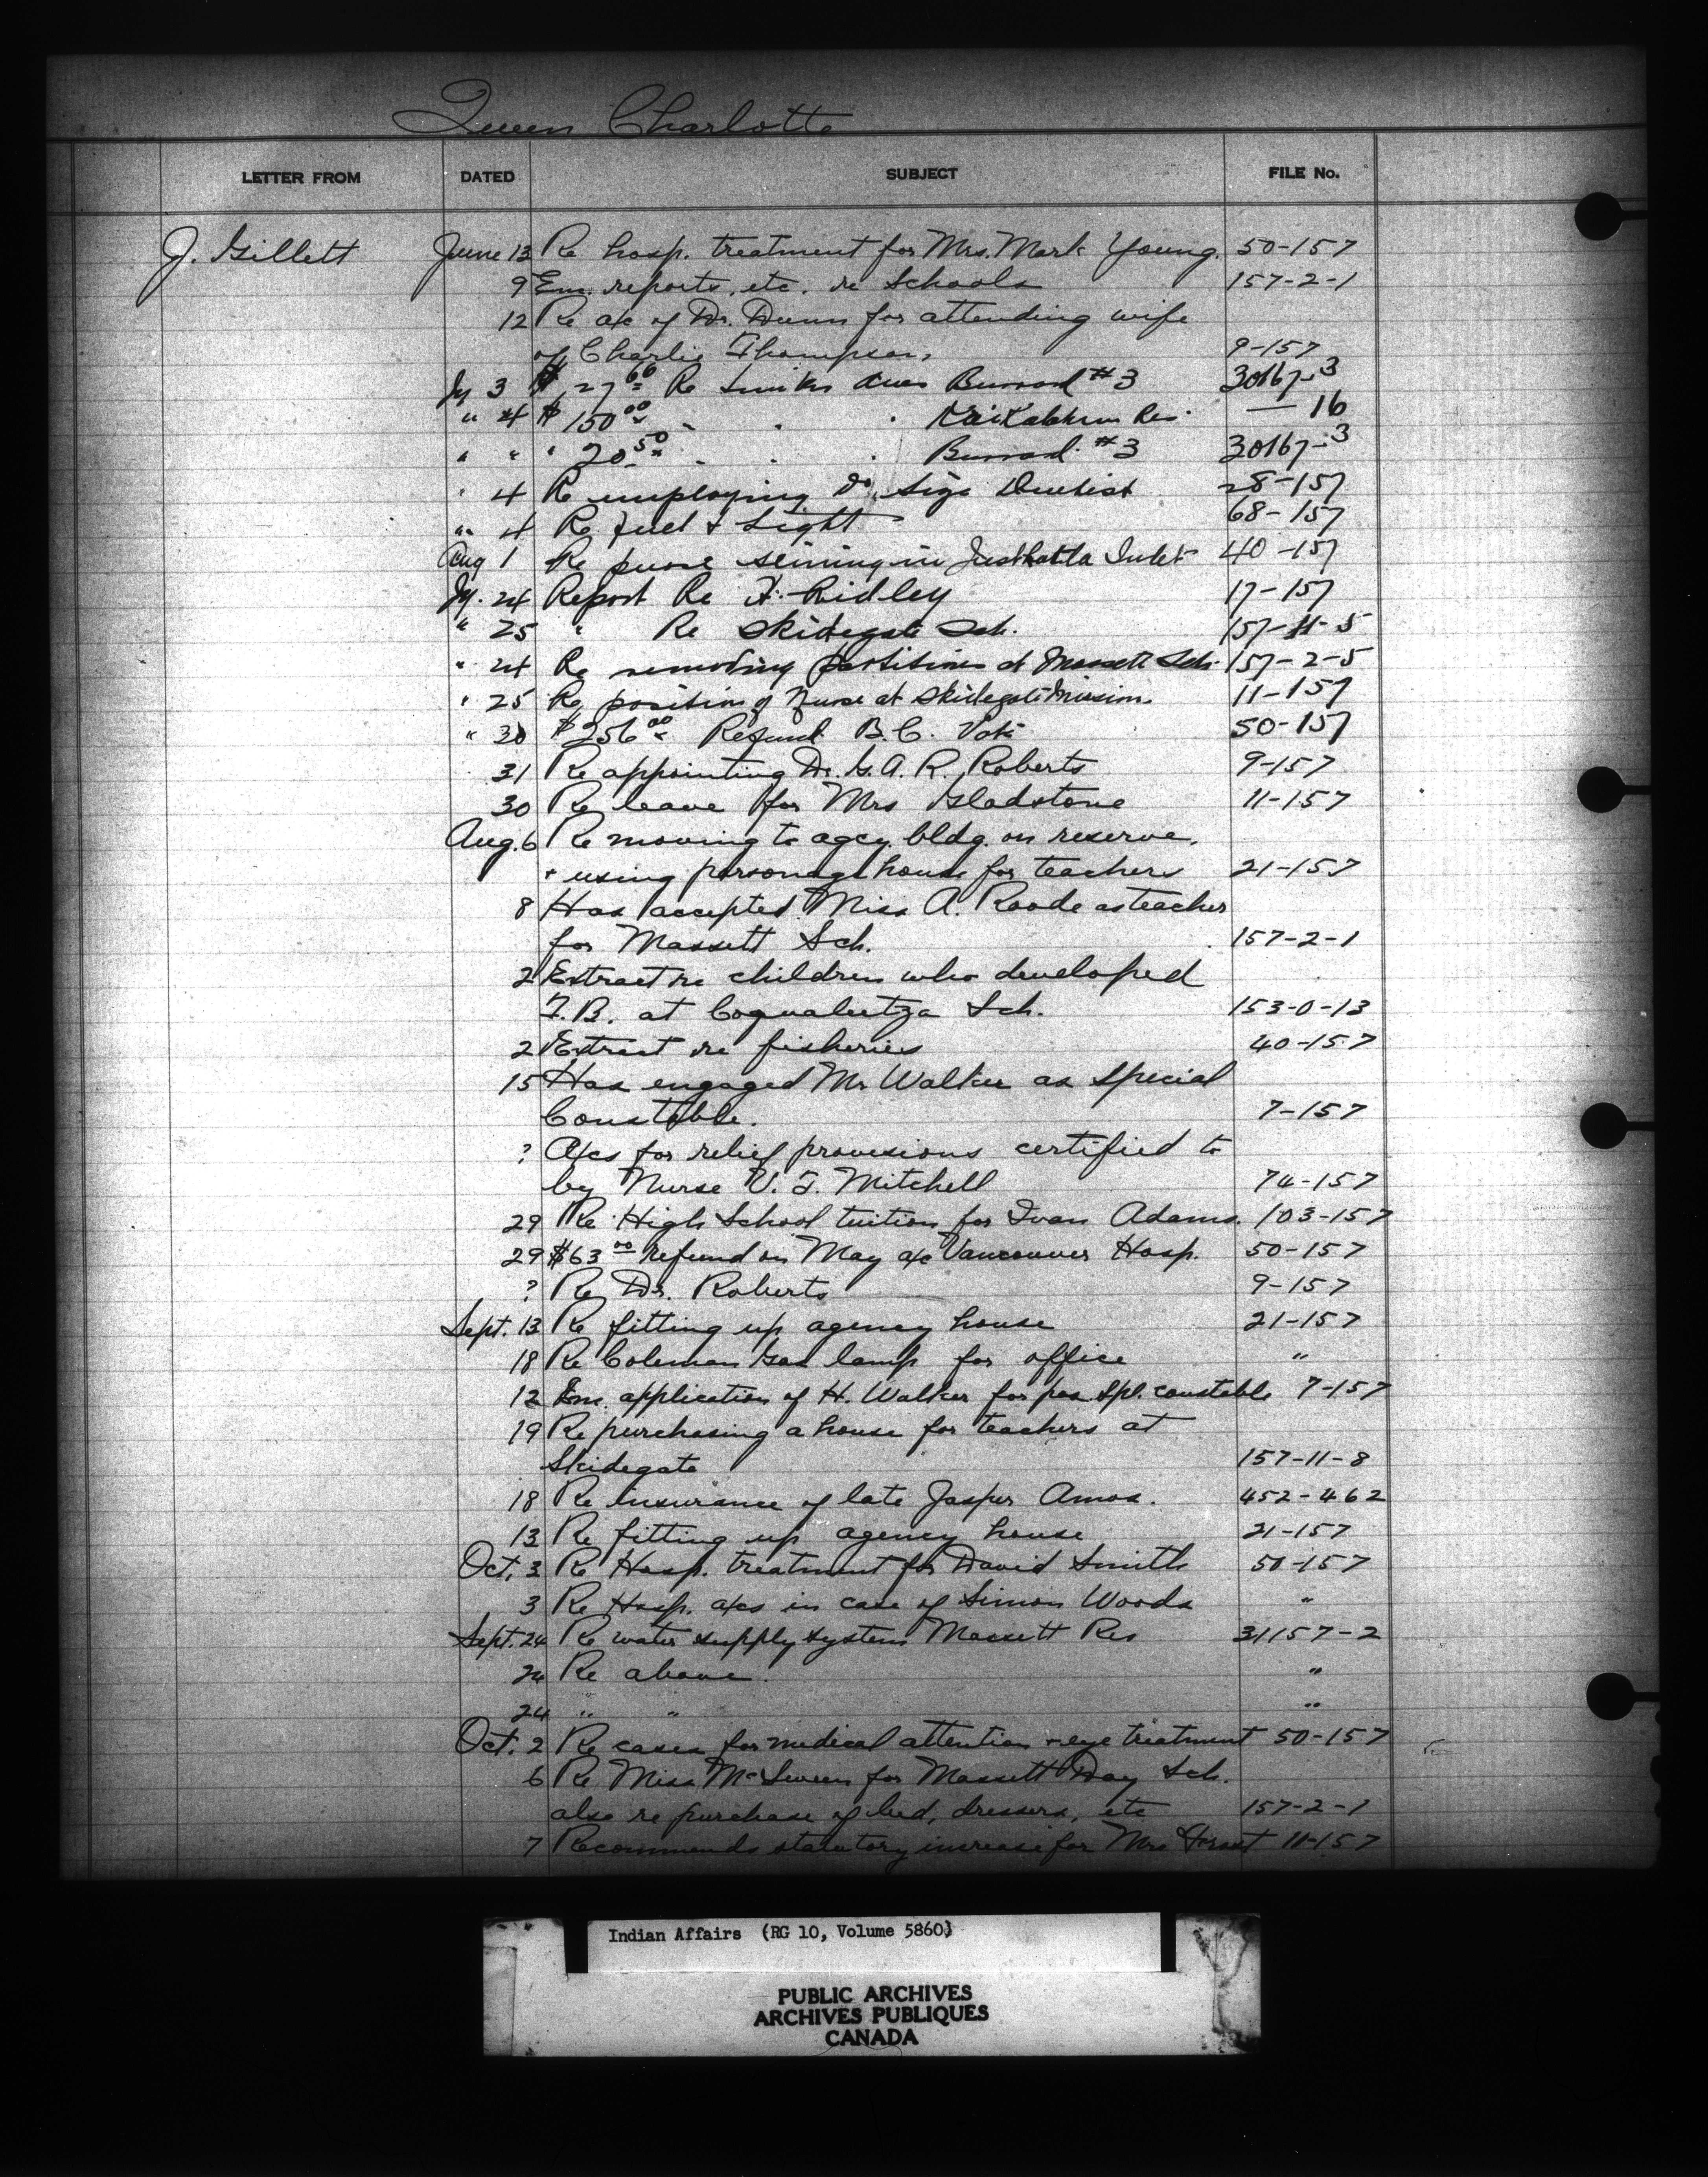 Queen Charlotte
LETTER FROM DATED SUBJECT FILE No.
J. Gillett June 13 Re hosp. treatment for Mrs. Mark Young. 50-157
9 Em. reports, etc. re Schools 157-2-1
12 Re a/c of Dr. Dunn for attending wife
of Charlie Thompson, 9-157
Jy 3 $27 66 Re Burrard #3 30167-3
" 4 $150 00 Res. — 16
" " " 20 50 Burrard #3 30167-3
" 4 Re employing Dentist 28-157
" 4 Re fuel & Light 68-157
Aug 1 Re purse seining in Inlet 40-157
Jy. 24 Report Re Ridley 17-157
" 25 " Re Skidegate Sch. 157-11-5
" 24 Re removing partitions at Massett Sch. 157-2-5
" 25 Re position of Nurse at Skidegate Mission. 11-157
" 30 $256 00 Refund B.C. Vote 50-157
31 Re appointing Dr. G. A. R. Roberts 9-157
30 Re leave for Mrs Gladstone 11-157
Aug. 6 Re moving to agcy. bldg. on reserve,
+ using parsonage house for teachers 21-157
8 Has accepted Miss A. Roode as teacher
for Massett Sch. 157-2-1
2 Extract re children who developed
T.B. at Coqualeetza Sch. 153-0-13
2 Extract re fisheries 40-157
15 Has engaged Mr Walker as Special
Constable. 7-157
? A/cs for relief provisions certified to
by Nurse V. T. Mitchell 74-157
29 Re High School tuition for Ivan Adams. 103-157
29 $63 00 refund on May a/c Vancouver Hosp. 50-157
? Re Dr. Roberts 9-157
Sept. 13 Re fitting up agency house 21-157
18 Re Coleman Gas lamp for office "
12 Em. application of H. Walker for pos. Spl. constable 7-157
19 Re purchasing a house for teachers at
Skidegate 157-11-8
18 Re insurance of late Jasper Amos. 452-462
13 Re fitting up agency house 21-157
Oct. 3 Re Hosp. treatment for David Smith 50-157
3 Re Hosp. a/cs in case of Simon Woods "
Sept. 24 Re water supply system Massett Res 31157-2
24 Re above. "
24 " " "
Oct. 2 Re cases for medical attention + eye treatment 50-157
6 Re Miss McSween for Massett Day Sch.
also re purchase of bed, dressers, etc 157-2-1
7 Recommends statutory increase for Mrs 11-157
Indian Affairs (RG 10, Volume 5860)
PUBLIC ARCHIVES
ARCHIVES PUBLIQUES
CANADA